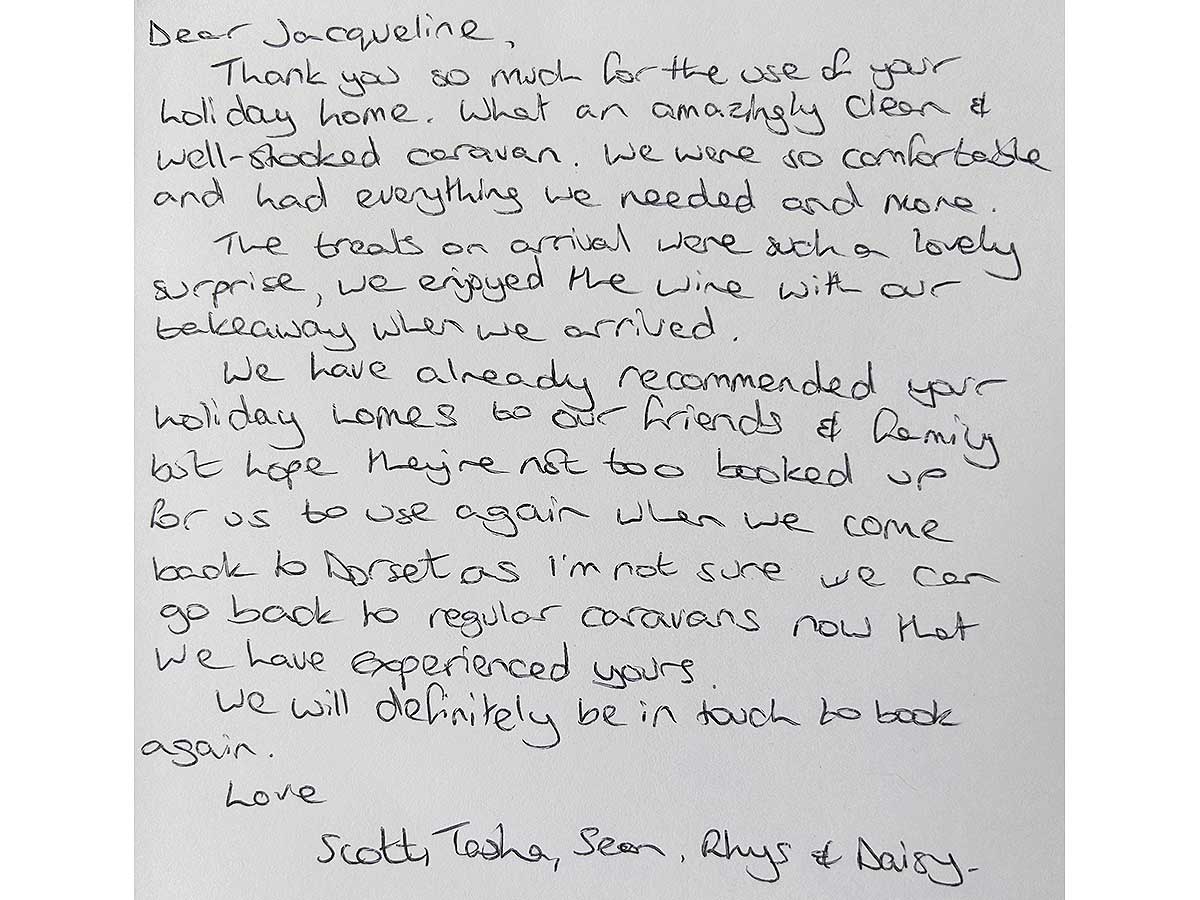 Dear Jacqueline,
Thank you so much for the use of your
holiday home. What an amazingly clean &
well-stocked caravan. We were so comfortable
and had everything we needed and more.
The treats on arrival were such a lovely
surprise, we enjoyed the wine with our
takeaway when we arrived.
We have already recommended your
holiday homes to our friends & family
but hope they're not too booked up
for us to use again when we come
back to Dorset as I'm not sure we can
go back to regular caravans now that
we have experienced yours.
We will definitely be in touch to book
again.
Love
Scott, Tasha, Sean, Rhys & Daisy-